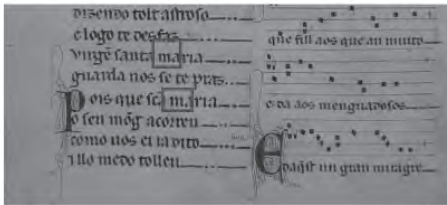 dizendo tolt astroso
e logo te desfas
uirgẽ santa maria
guarda nos se te pras
Pois que scã maria
o seu mõg acorreu
como uos ei ia dito
i llo medo tolleu
que fill aos que an muito
e da aos menguadosos
E daqest un gran miragre